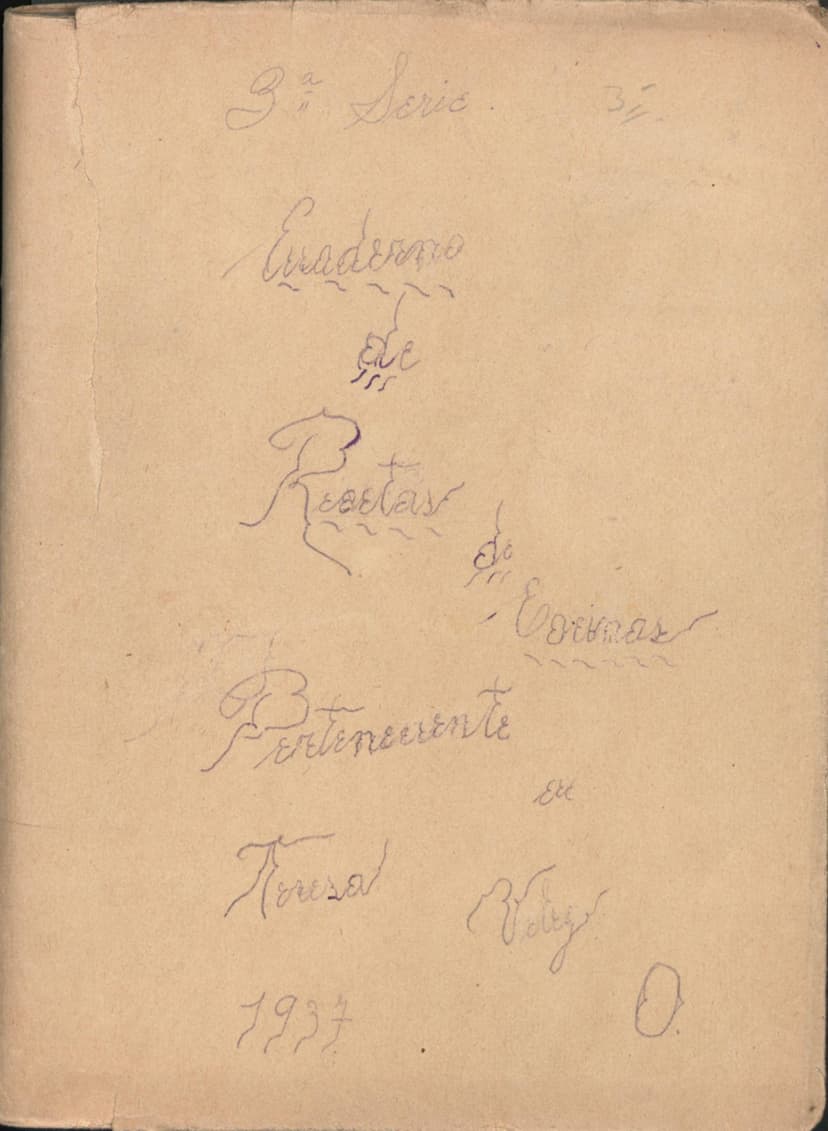 3ª Serie. 3=
Cuaderno
de
Recetas
de
Cocinas
Perteneciente
a
Teresa
1937 O.